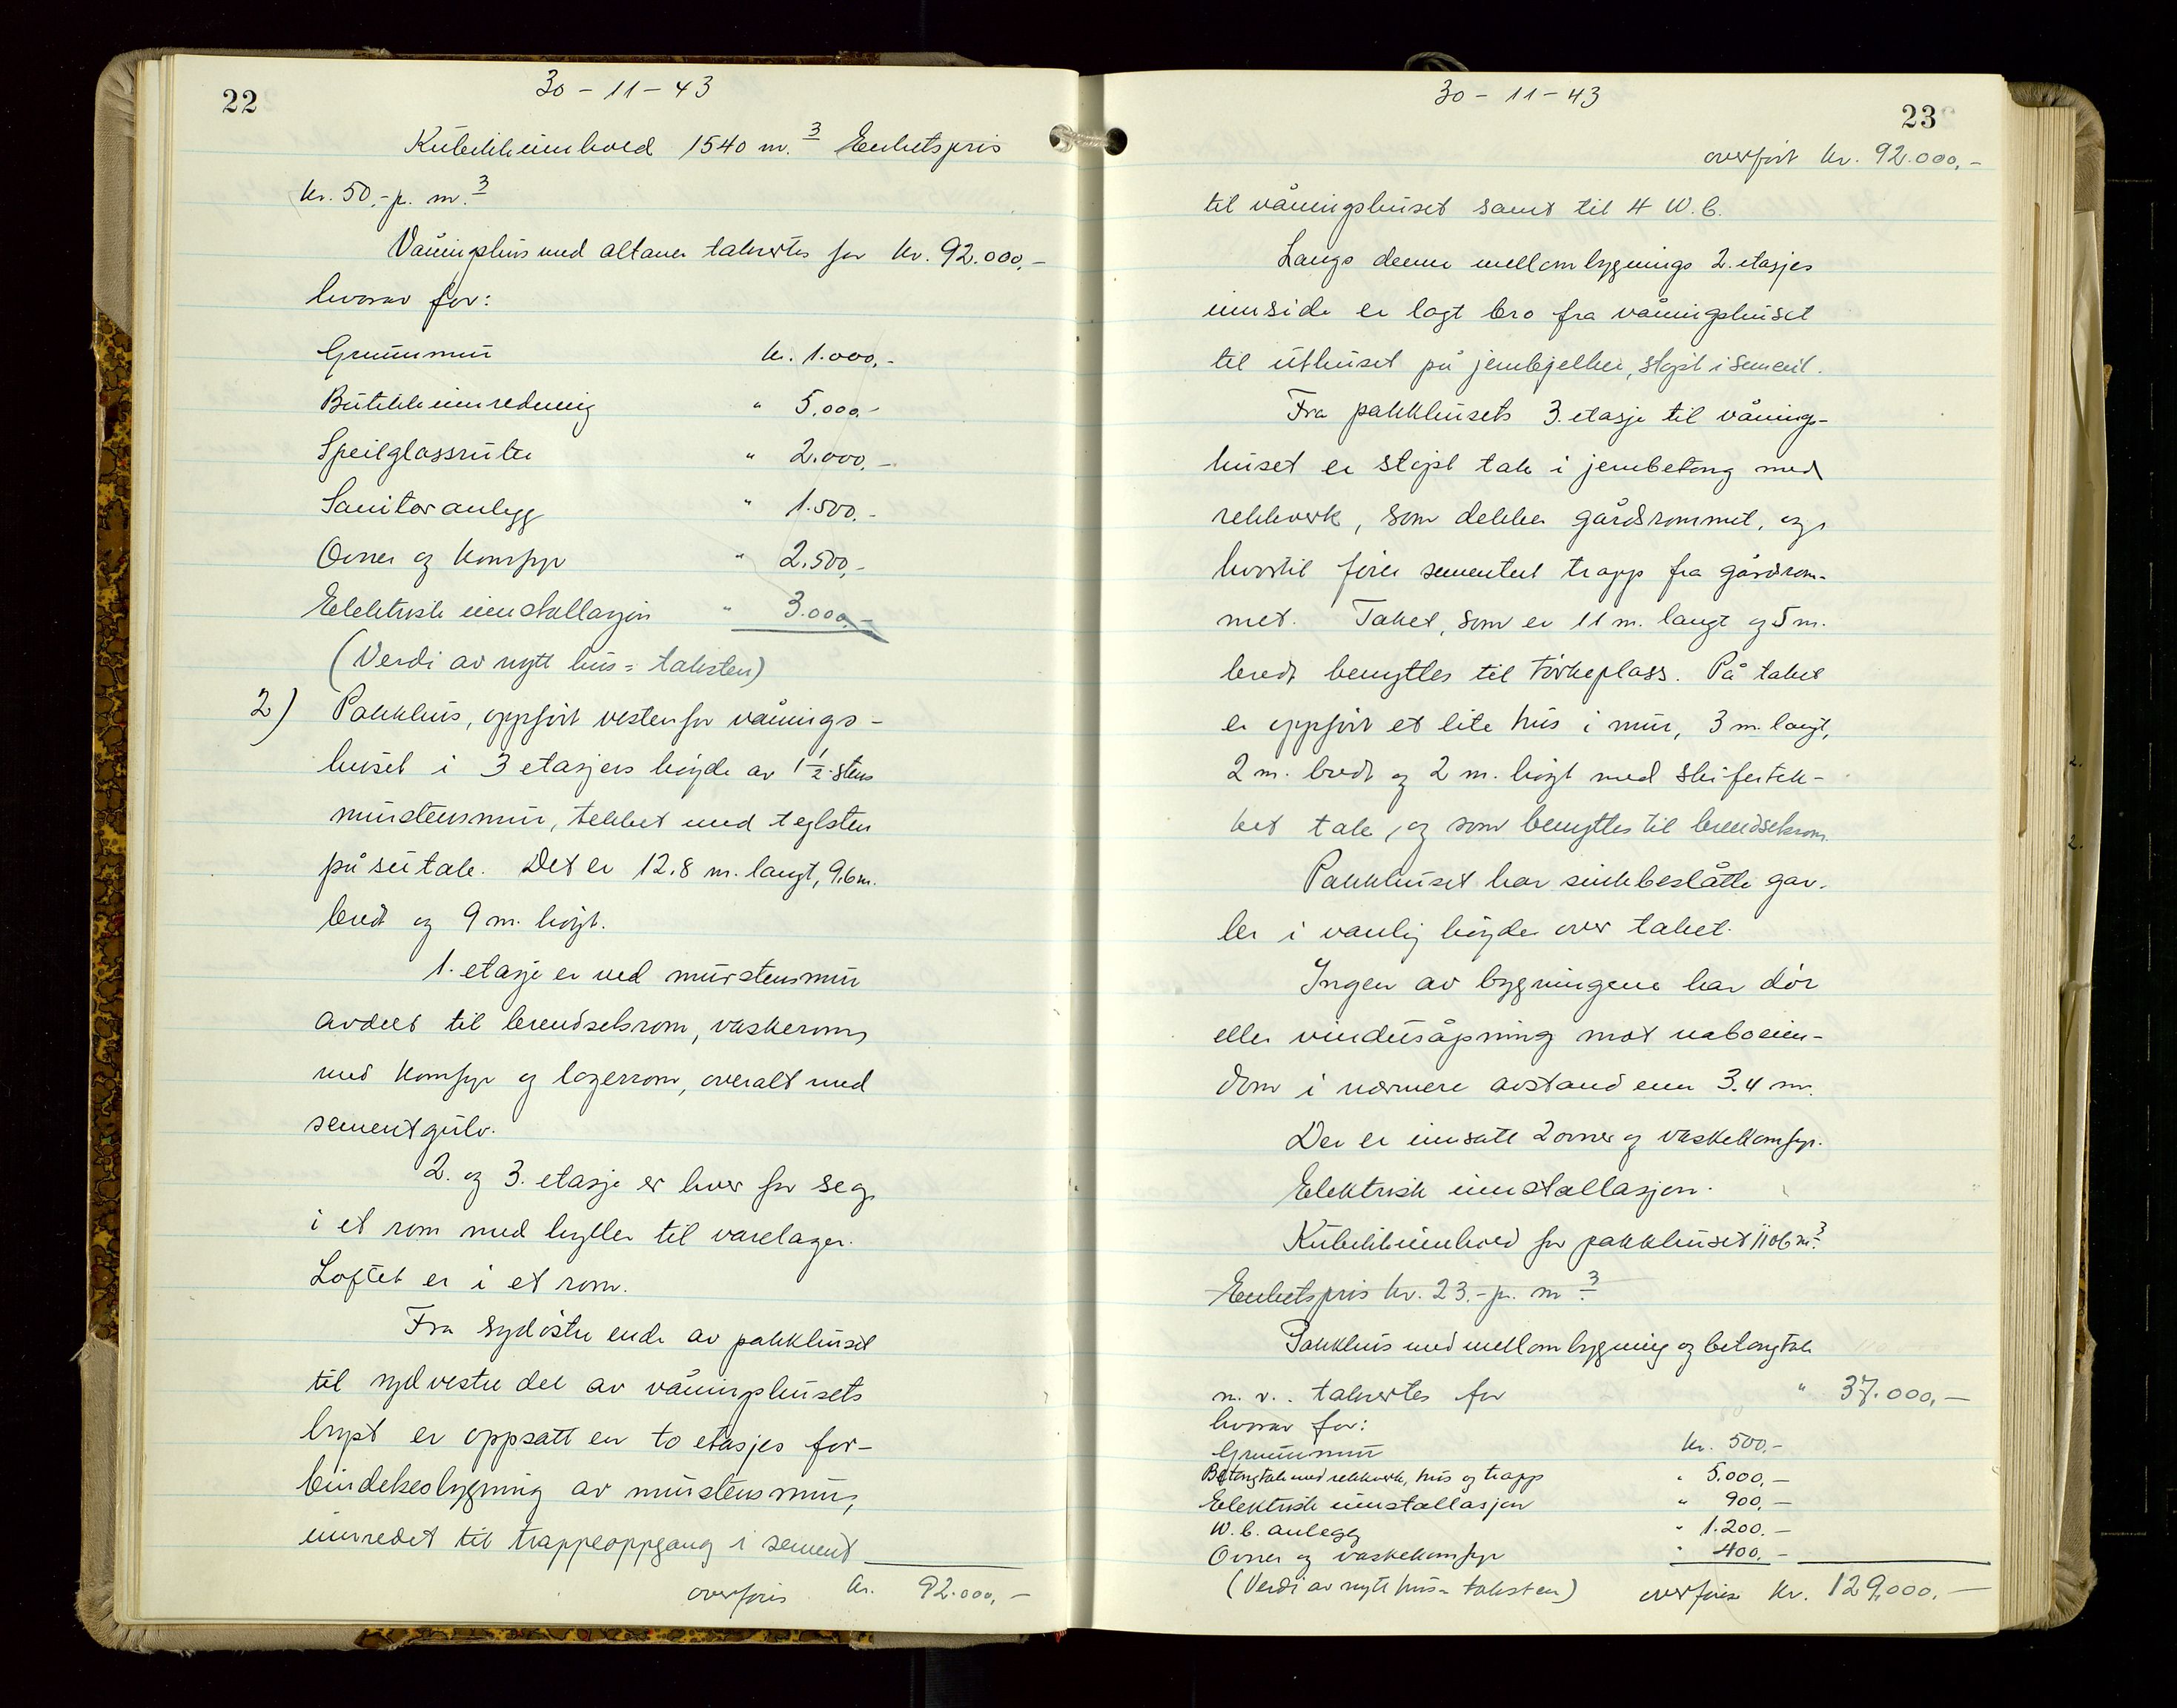 22
30-11-43
Kubikkinnhold 1540 m.3 Enhetspris
kr. 50,- p. m.3
Våningshus med altaner takseres for kr. 92.000,-
hvorav for:
Grunnmur kr. 1.000,-
Butikkinnredning " 5.000,-
Speilglassruter " 2.000,-
Sanitæranlegg " 1.500,-
Ovner og komfyr " 2.500,-
Elektrisk innstallasjon " 3.000,-
(Verdi av nytt hus = taksten)
2) Pakkhus, oppført vestenfor vånings-
huset i 3 etasjers høyde av 1 1/2 stens
murstensmur, tekket med teglsten
på sutak. Det er 12.8 m. langt, 9.6 m.
bredt og 9 m. høgt.
1. etasje er ved murstensmur
avdelt til brendselsrom, vaskerom
med komfyr og lagerrom, overalt med
sementgulv.
2. og 3. etasje er hver for seg
i et rom med hyller til varelager.
Loftet er i et rom.
Fra sydøstre ende av pakkhuset
til sydvestre del av våningshusets
bygt er oppsatt en to etasjes for-
bindelsesbygning av murstensmur,
innredet til trappeoppgang i sement
overføres kr. 92.000,-
30-11-43
23
overført kr. 92.000,-
til våningshuset samt til 4 W.C.
Langs denne mellombygnings 2. etasjes
innside er lagt bro fra våningshuset
til uthuset på jernbjelker, støpt i sement.
Fra pakkhusets 3. etasje til vånings-
huset er støpt tak i jernbetong med
rekkverk, som dekker gårdsrommet, og
hvortil fører sementert trapp fra gårdsrom-
met. Taket, som er 11 m. langt og 5 m.
bredt benyttes til tørkeplass. På taket
er oppført et lite hus i mur, 3 m. langt,
2 m. bredt og 2 m. høgt med skifertek-
ket tak, og som benyttes til brendselsrom.
Pakkhuset har sinkbeslåtte gav-
ler i vanlig høyde over taket.
Ingen av bygningene har dør
eller vindusåpning mot naboeien-
dom i nærmere avstand enn 3.4 m.
Der er innsatt 2 ovner og vaskekomfyr.
Elektrisk innstallasjon.
Kubikkinnhold for pakkhuset 1106 m.3
Enhetspris kr. 23.- p. m.3
Pakkhus med mellombygning og betongtak
m. v. takseres for " 37.000,-
hvorav for:
Grunnmur kr. 500,-
Betongtak med rekkverk, hus og trapp " 5.000,-
Elektrisk innstallasjon " 900,-
W.C. anlegg " 1.200.-
Ovner og vaskekomfyr " 400,-
(Verdi av nytt hus = taksten) overføres kr. 129.000.-